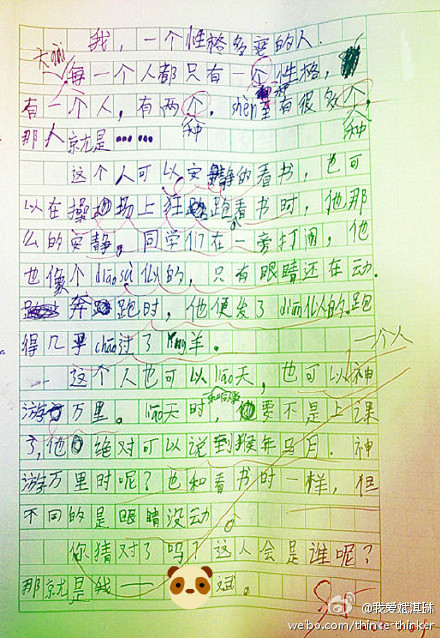 我，一个性格多变的人.
大gai
每一个人都只有一个性格，
有一个人，有两个，shen至有很多个，
种
种
那人就是……
这个人可以安静的看书，也可
以在操场上狂跑。看书时，他那
么的安静。同学们在一旁打闹，他
也像个diao像似的，只有眼睛还在动。
奔跑时，他便发了dian似的.跑
得几乎chao过了ling羊。
一个人
这个人也可以liao天，也可以神
游万里。liao天时，要不是上课
了，他绝对可以说到猴年马月.神
游万里时呢？也和看书时一样，但
不同的是眼睛没动。
你猜对了吗？这人会是谁呢？
那就是我——斌。
@我爱斌淇琳
weibo.com/thinkerthinker